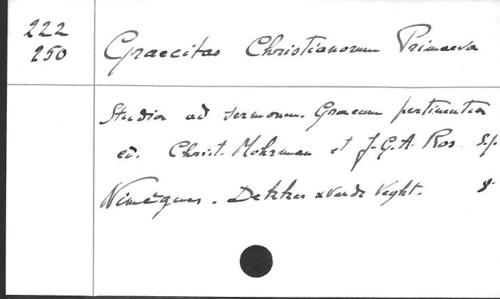 222
250
Graecitas Christianorum Primaeva
Studia ad sermonem Graecum pertinentia
ed. Christ. Mohrman et J.G.A. Ros. S.p.
Nimègues. Dekker & van de Veght. 8